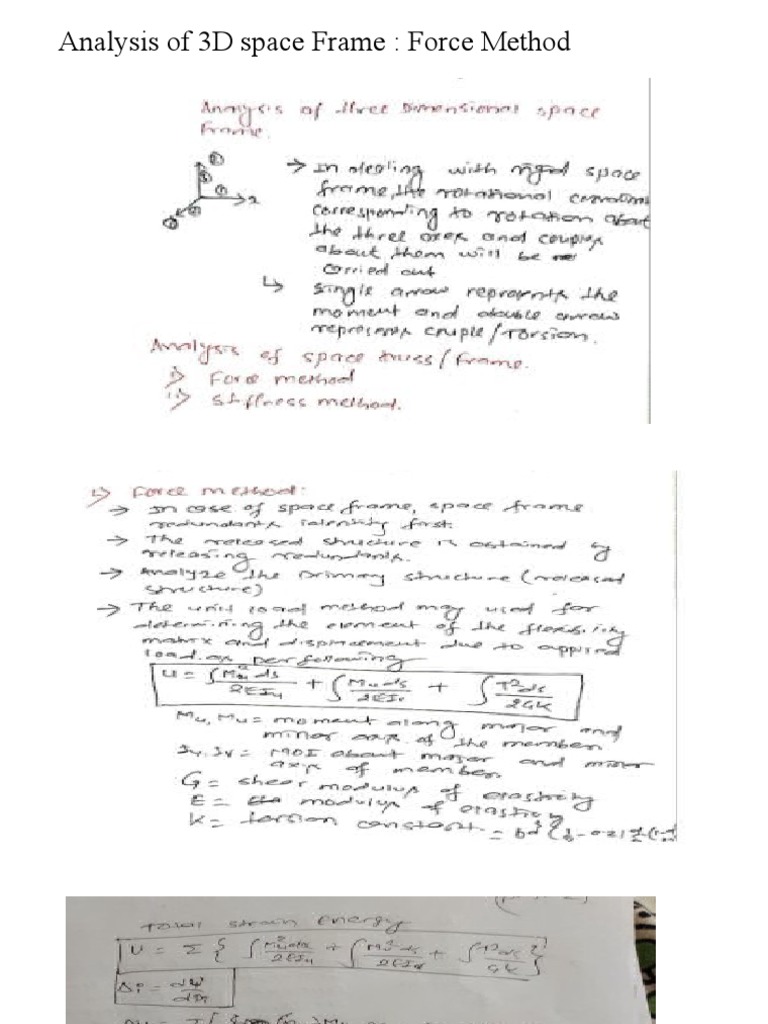 Analysis of 3D space Frame : Force Method
Analysis of three Dimensional space
Frame.
→ In dealing with rigid space
frame, the rotational
x
corresponding to rotation about
the three axes and couples
about them will be
carried out
↳ Single arrow represents the
moment and double arrow
represents couple/Torsion.
Analysis of space truss/frame.
i) Force method
ii) Stiffness method.
1) Force method:
→ In case of space frame, space frame
redundants identify first.
→ The released structure is obtained by
releasing redundants.
→ Analyze the primary structure (released
structure)
→ The unit load method may used for
determining the element of the flexibility
matrix and displacement due to applied
load. as per following
U = ∫ Mu² ds / 2EIu + ∫ Mv ds / 2EIv + ∫ T² ds / 2GK
Mu, Mv = moment along major and
minor axis of the member.
Iu, Iv = MOI about major and minor
axis of member.
G = shear modulus of elasticity
E = modulus of elasticity
K = torsion constant =
Total strain energy
U = Σ { ∫ Mu² ds / 2EIu + ∫ Mv² ds / 2EIv + ∫ T² ds / GK }
Δi =